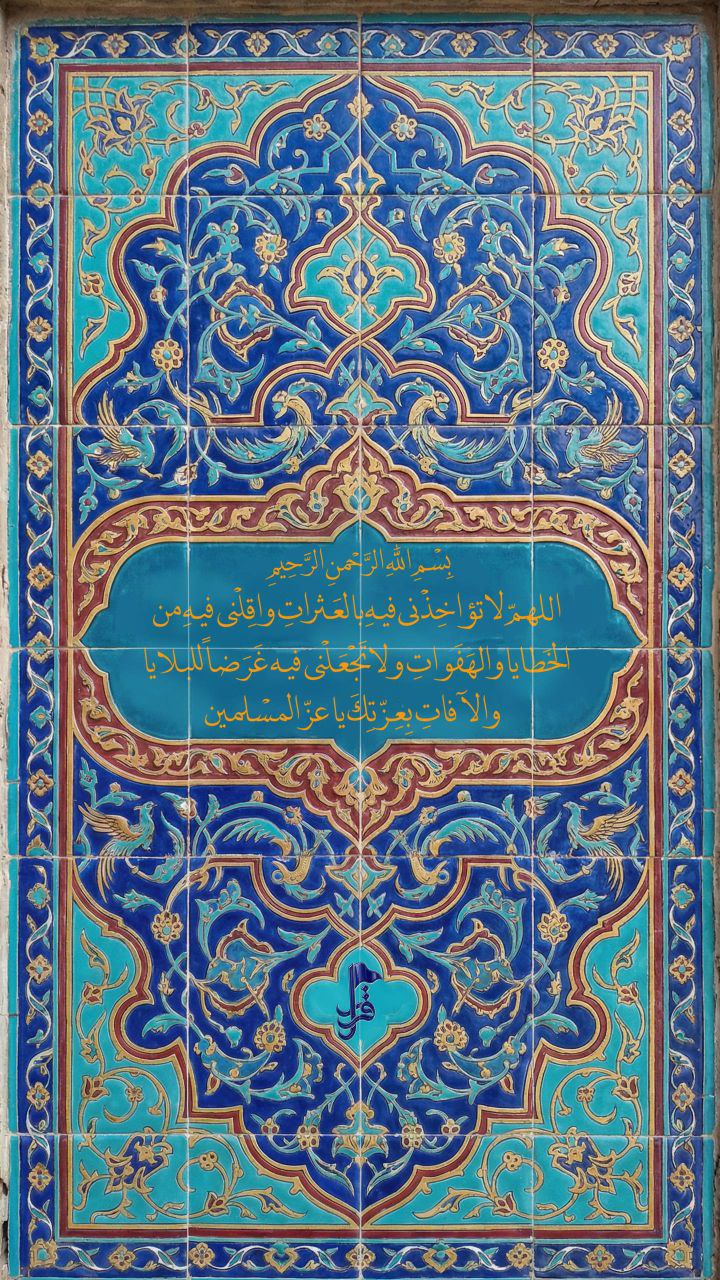 بِسْمِ اللّٰهِ الرَّحْمنِ الرَّحِيمِ
اللهمّ لا تؤاخِذْنی فیهِ بالعَثراتِ واقِلْنی فیهِ من
الخَطایا والهَفَواتِ ولا تَجْعَلْنی فیه غَرَضاً للبلایا
والآفاتِ بِعِزّتِكَ یا عزّ المسْلمین